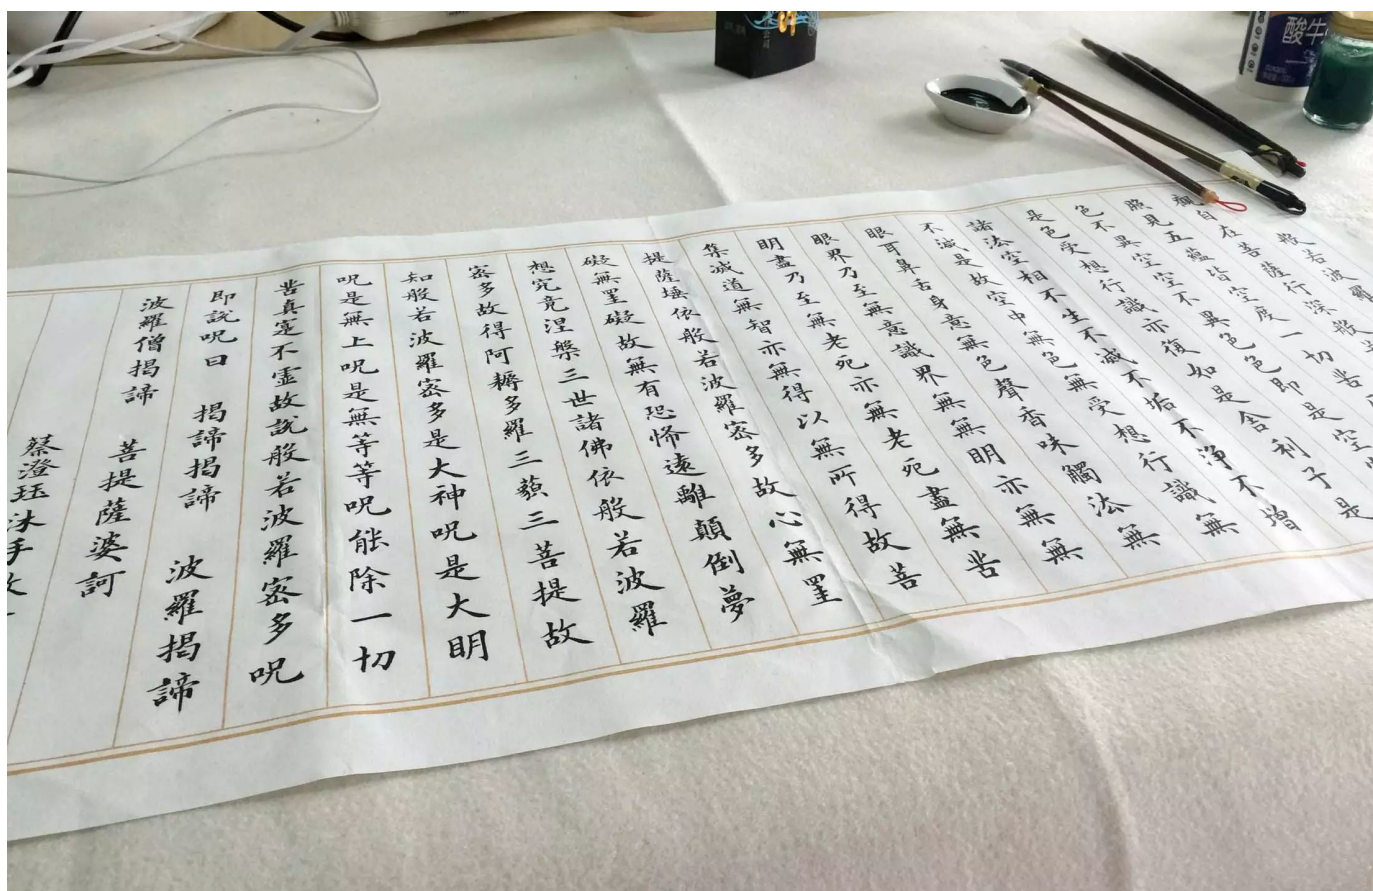 般若波羅
觀自在菩薩行深般
照見五蘊皆空度一切苦
色不異空空不異色色即是空
是色受想行識亦復如是舍利子是
諸法空相不生不滅不垢不淨不增
不減是故空中無色無受想行識無
眼耳鼻舌身意無色聲香味觸法無
眼界乃至無意識界無無明亦無無
明盡乃至無老死亦無老死盡無苦
集滅道無智亦無得以無所得故菩
提薩埵依般若波羅蜜多故心無罣
礙無罣礙故無有恐怖遠離顛倒夢
想究竟涅槃三世諸佛依般若波羅
蜜多故得阿耨多羅三藐三菩提故
知般若波羅蜜多是大神呪是大明
呪是無上呪是無等等呪能除一切
苦真寔不虛故說般若波羅蜜多呪
即說呪曰 揭諦揭諦 波羅揭諦
波羅僧揭諦 菩提薩婆訶
蔡澄珏沐手敬
酸牛